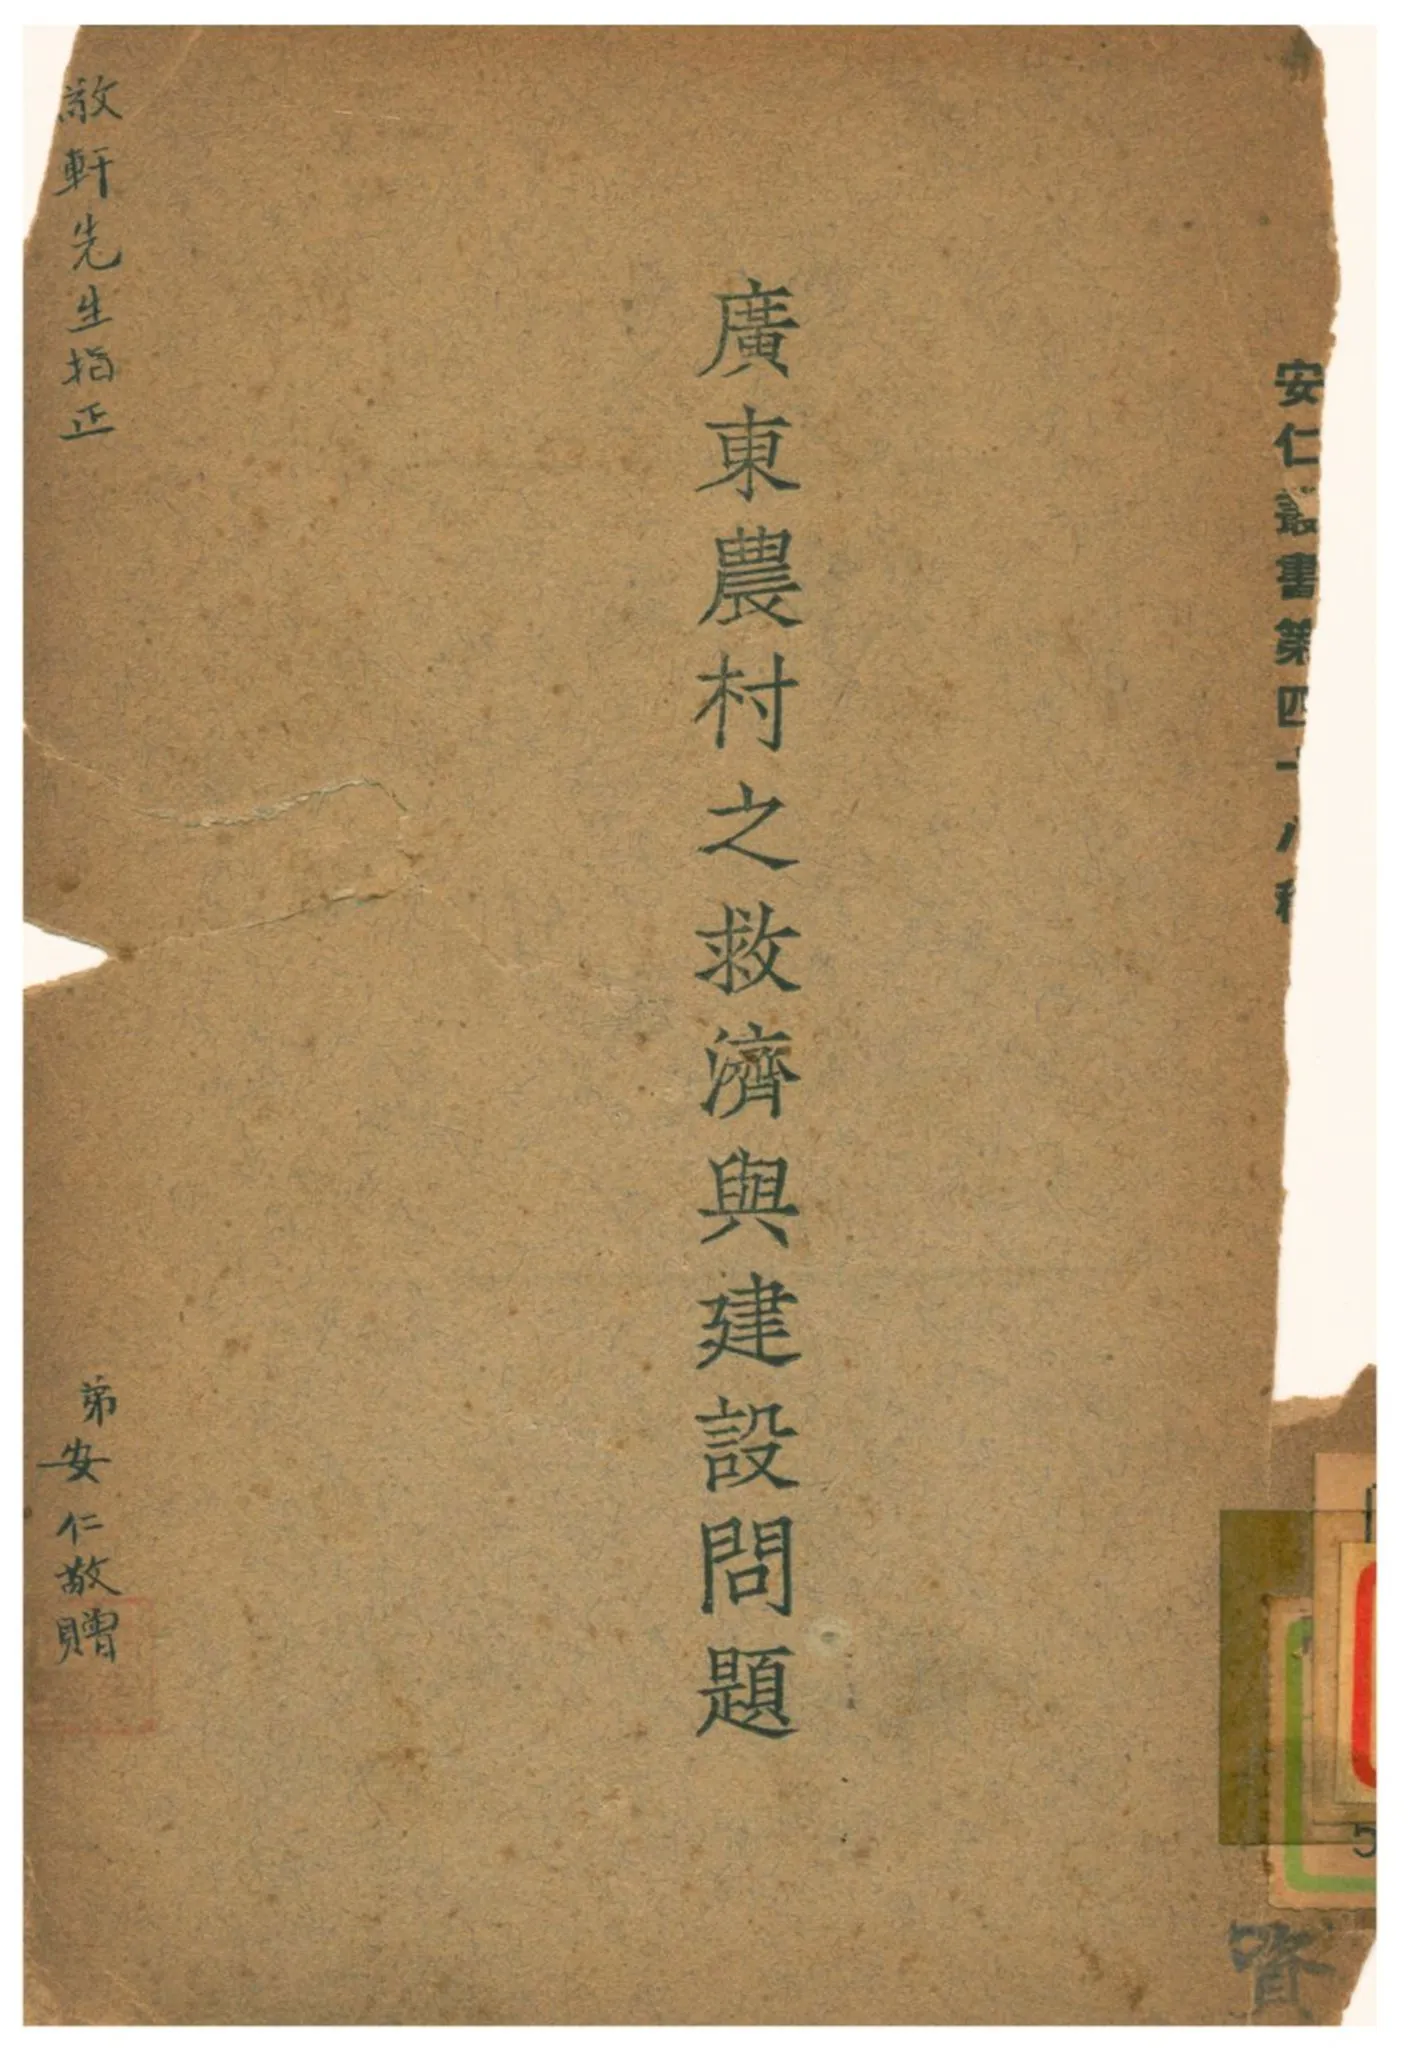 安仁叢書第四十八種
廣東農村之救濟與建設問題
敬軒先生指正
弟安仁敬贈